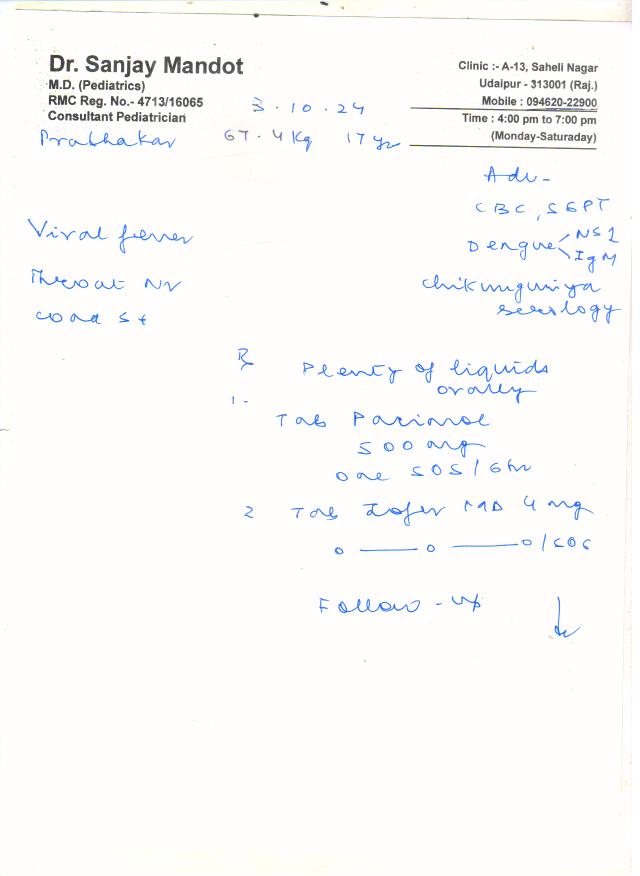 Dr. Sanjay Mandot
M.D. (Pediatrics)
RMC Reg. No.- 4713/16065
Consultant Pediatrician
Clinic :- A-13, Saheli Nagar
Udaipur - 313001 (Raj.)
Mobile : 094620-22900
Time : 4:00 pm to 7:00 pm
(Monday-Saturaday)
3.10.24
Prabhakar 67.4 Kg 17 yr
Adv -
CBC, SGPT
Dengue NS1
IgM
Chikunguniya
serology
Viral fever
Throat
Rx Plenty of liquids
orally
1- Tab Pacimol
500 mg
one SOS/6hr
2 Tab Zofer MD 4 mg
o — o — o/SOS
Follow-up